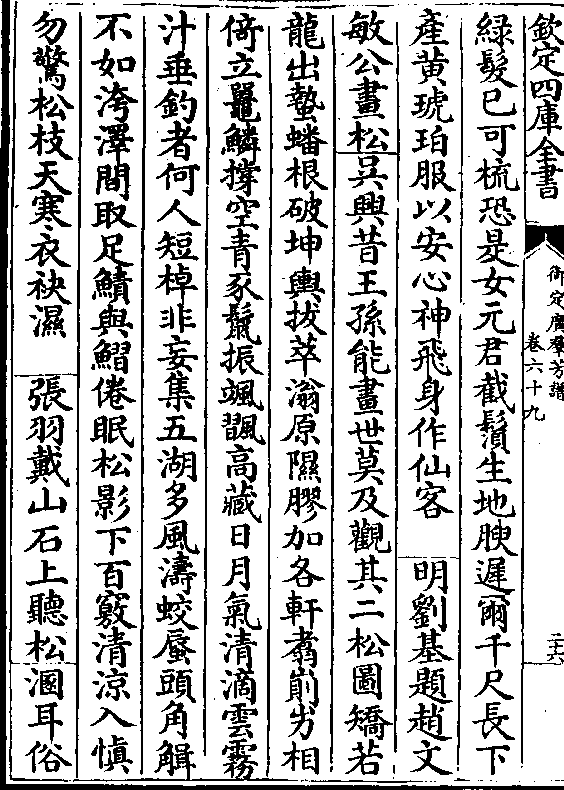 欽定四庫全書
御定廣羣芳譜
卷六十九
二十六
綠髮已可梳恐是女元君截鬚生地腴遲爾千尺長下
產黃琥珀服以安心神飛身作仙客 明劉基題趙文
敏公畫松吳興昔王孫能畫世莫及觀其二松圖矯若
龍出蟄蟠根破坤輿拔萃滃原隰膠加各軒翥崱屴相
倚立鼉鱗撐空青豕鬛振颯翻高藏日月氣清滴雲霧
汁垂釣者何人短棹非妄集五湖多風濤蛟蜃頭角緝
不如洿澤間取足鯖與鰼倦眠松影下百竅清涼入愼
勿驚松枝天寒衣袂濕 張羽戴山石上聽松溷耳俗